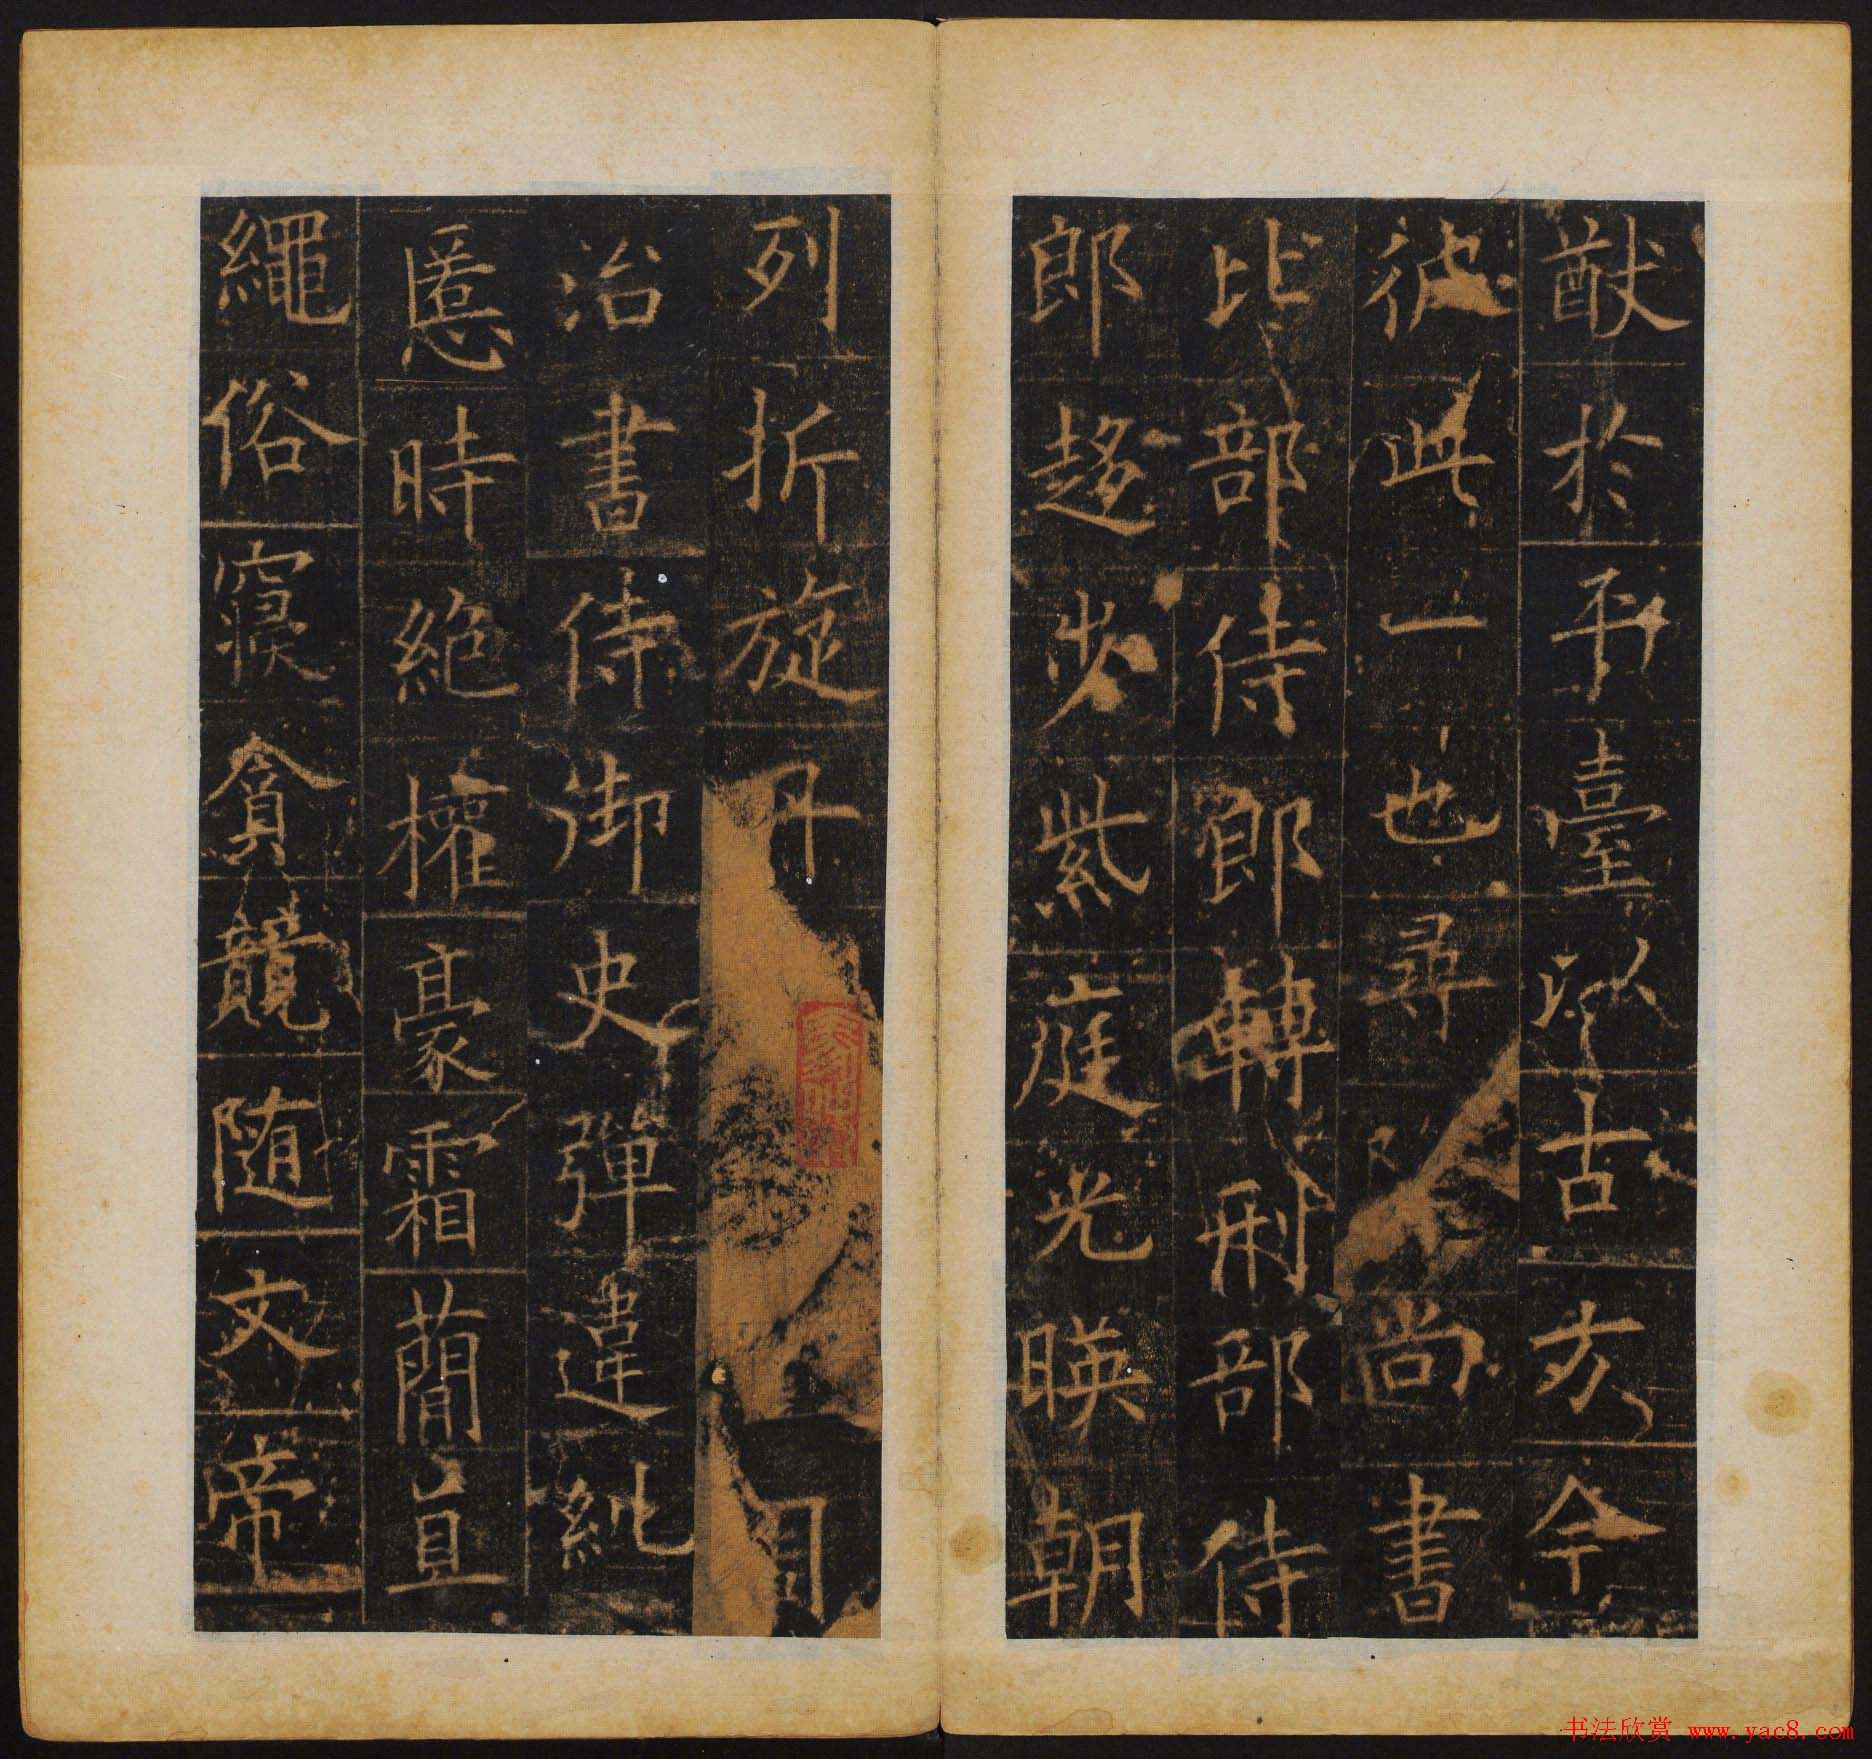 猷於平臺以古方今
彼此一也尋尚書
比部侍郎轉刑部侍
郎趍步紫庭光暎朝
列折旋丹
治書侍御史彈違糺
慝時絕權豪霜簡直
繩俗寢貪競随文帝
书法欣赏 www.yac8.com